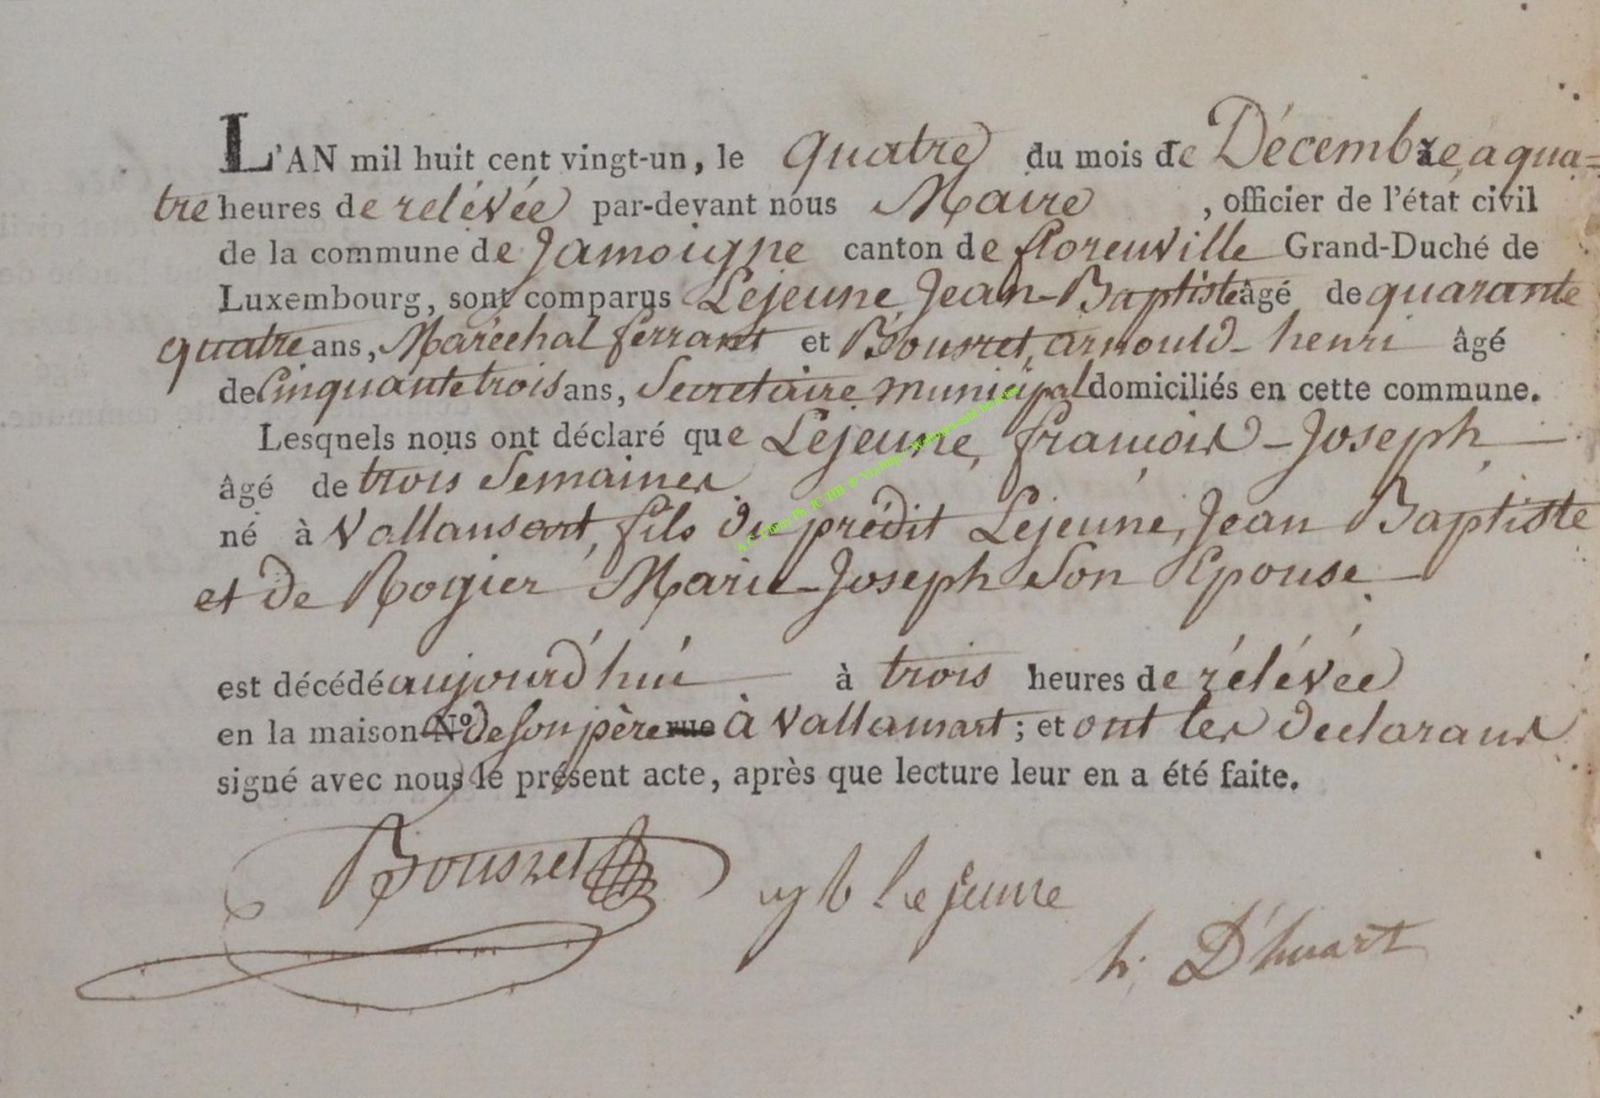 L'AN mil huit cent vingt-un, le quatre du mois de Décembre, a qua=
tre heures de relévée par-devant nous Maire , officier de l'état civil
de la commune de Jamoigne canton de florenville Grand-Duché de
Luxembourg, sont comparus Lejeune, Jean-Baptiste âgé de quarante
quatre ans, Maréchal ferrant et Bousret, arnould-henri âgé
de Cinquante trois ans, Secretaire municipal domiciliés en cette commune.
Lesquels nous ont déclaré que Lejeune, francois-Joseph
âgé de trois Semaines
né à Vallansart, fils du prédit Lejeune, Jean Baptiste
et de Rogier Marie-Joseph Son Epouse
est décédé aujourd'hui à trois heures de rélévée
en la maison N.º de son père rue à Vallansart ; et ont les declarans
signé avec nous le présent acte, après que lecture leur en a été faite.
Bousret
Lejeune
h. D'huart